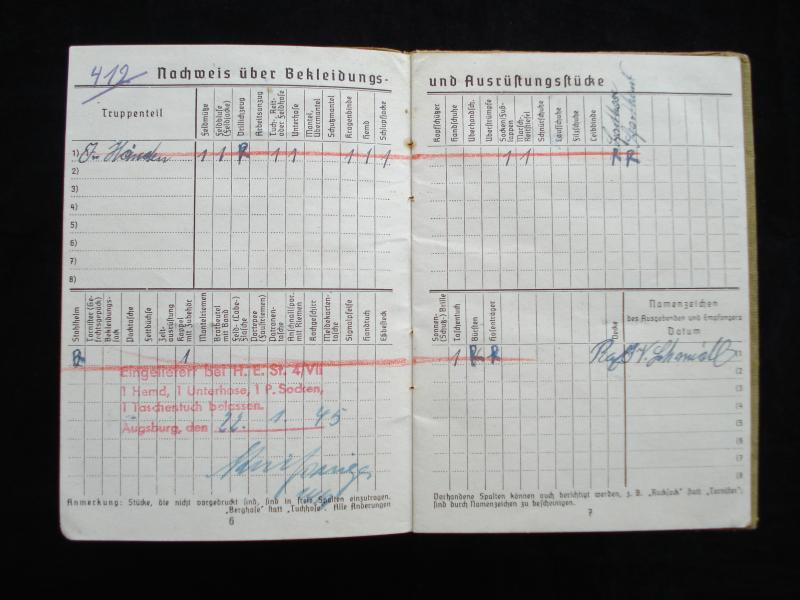 412
Nachweis über Bekleidungs-
Truppenteil
Feldmütze
Feldbluse (Feldjacke)
Drillichzeug
Arbeitsanzug
Tuch-, Reit- oder Feldhose
Unterhose
Mantel, Übermantel
Schutzmantel
Kragenbinde
Hemd
Schlupfjacke
1) 1 1 1 1 1 1 1
2)
3)
4)
5)
6)
7)
8)
Stahlhelm
Tornister (Gefechtsgepäck)
Bekleidungssack
Packtasche
Fettbüchse
Zeltausrüstung
Koppel mit Zubehör
Mantelriemen
Brotbeutel mit Band
Feld- (Labe-) Flasche
Portepee (Faustriemen)
Patronentasche
Anschnallspor. mit Riemen
Kochgeschirr
Meldekartentasche
Signalpfeife
Handtuch
Eßbesteck
1
Eingeliefert bei H. E. St. 4/VII
1 Hemd, 1 Unterhose, 1 P. Socken,
1 Taschentuch belassen.
Augsburg, den 22. 1. 45
Anmerkung: Stücke, die nicht vorgedruckt sind, sind in freie Spalten einzutragen,
„Berghose" statt „Tuchhose". Alle Änderungen
6
und Ausrüstungsstücke
Kopfschützer
Handschuhe
Überhandsch.
Überstrümpfe
Socken/Fußlappen
Marsch-, Reitstiefel
Schnürschuhe
Laufschuhe
Filzschuhe
Leibbinde
Sporthose
Sporthemd
1 1
Sonnen- (Schutz-) Brille
Taschentuch
Bürsten
Hosenträger
Decke
Namenzeichen
des Ausgebenden und Empfängers
Datum
1
(1
(2
(3
(4
(5
(6
(7
(8
Vorhandene Spalten können auch berichtigt werden, z. B. „Rucksack" statt „Tornister";
sind durch Namenzeichen zu bescheinigen.
7